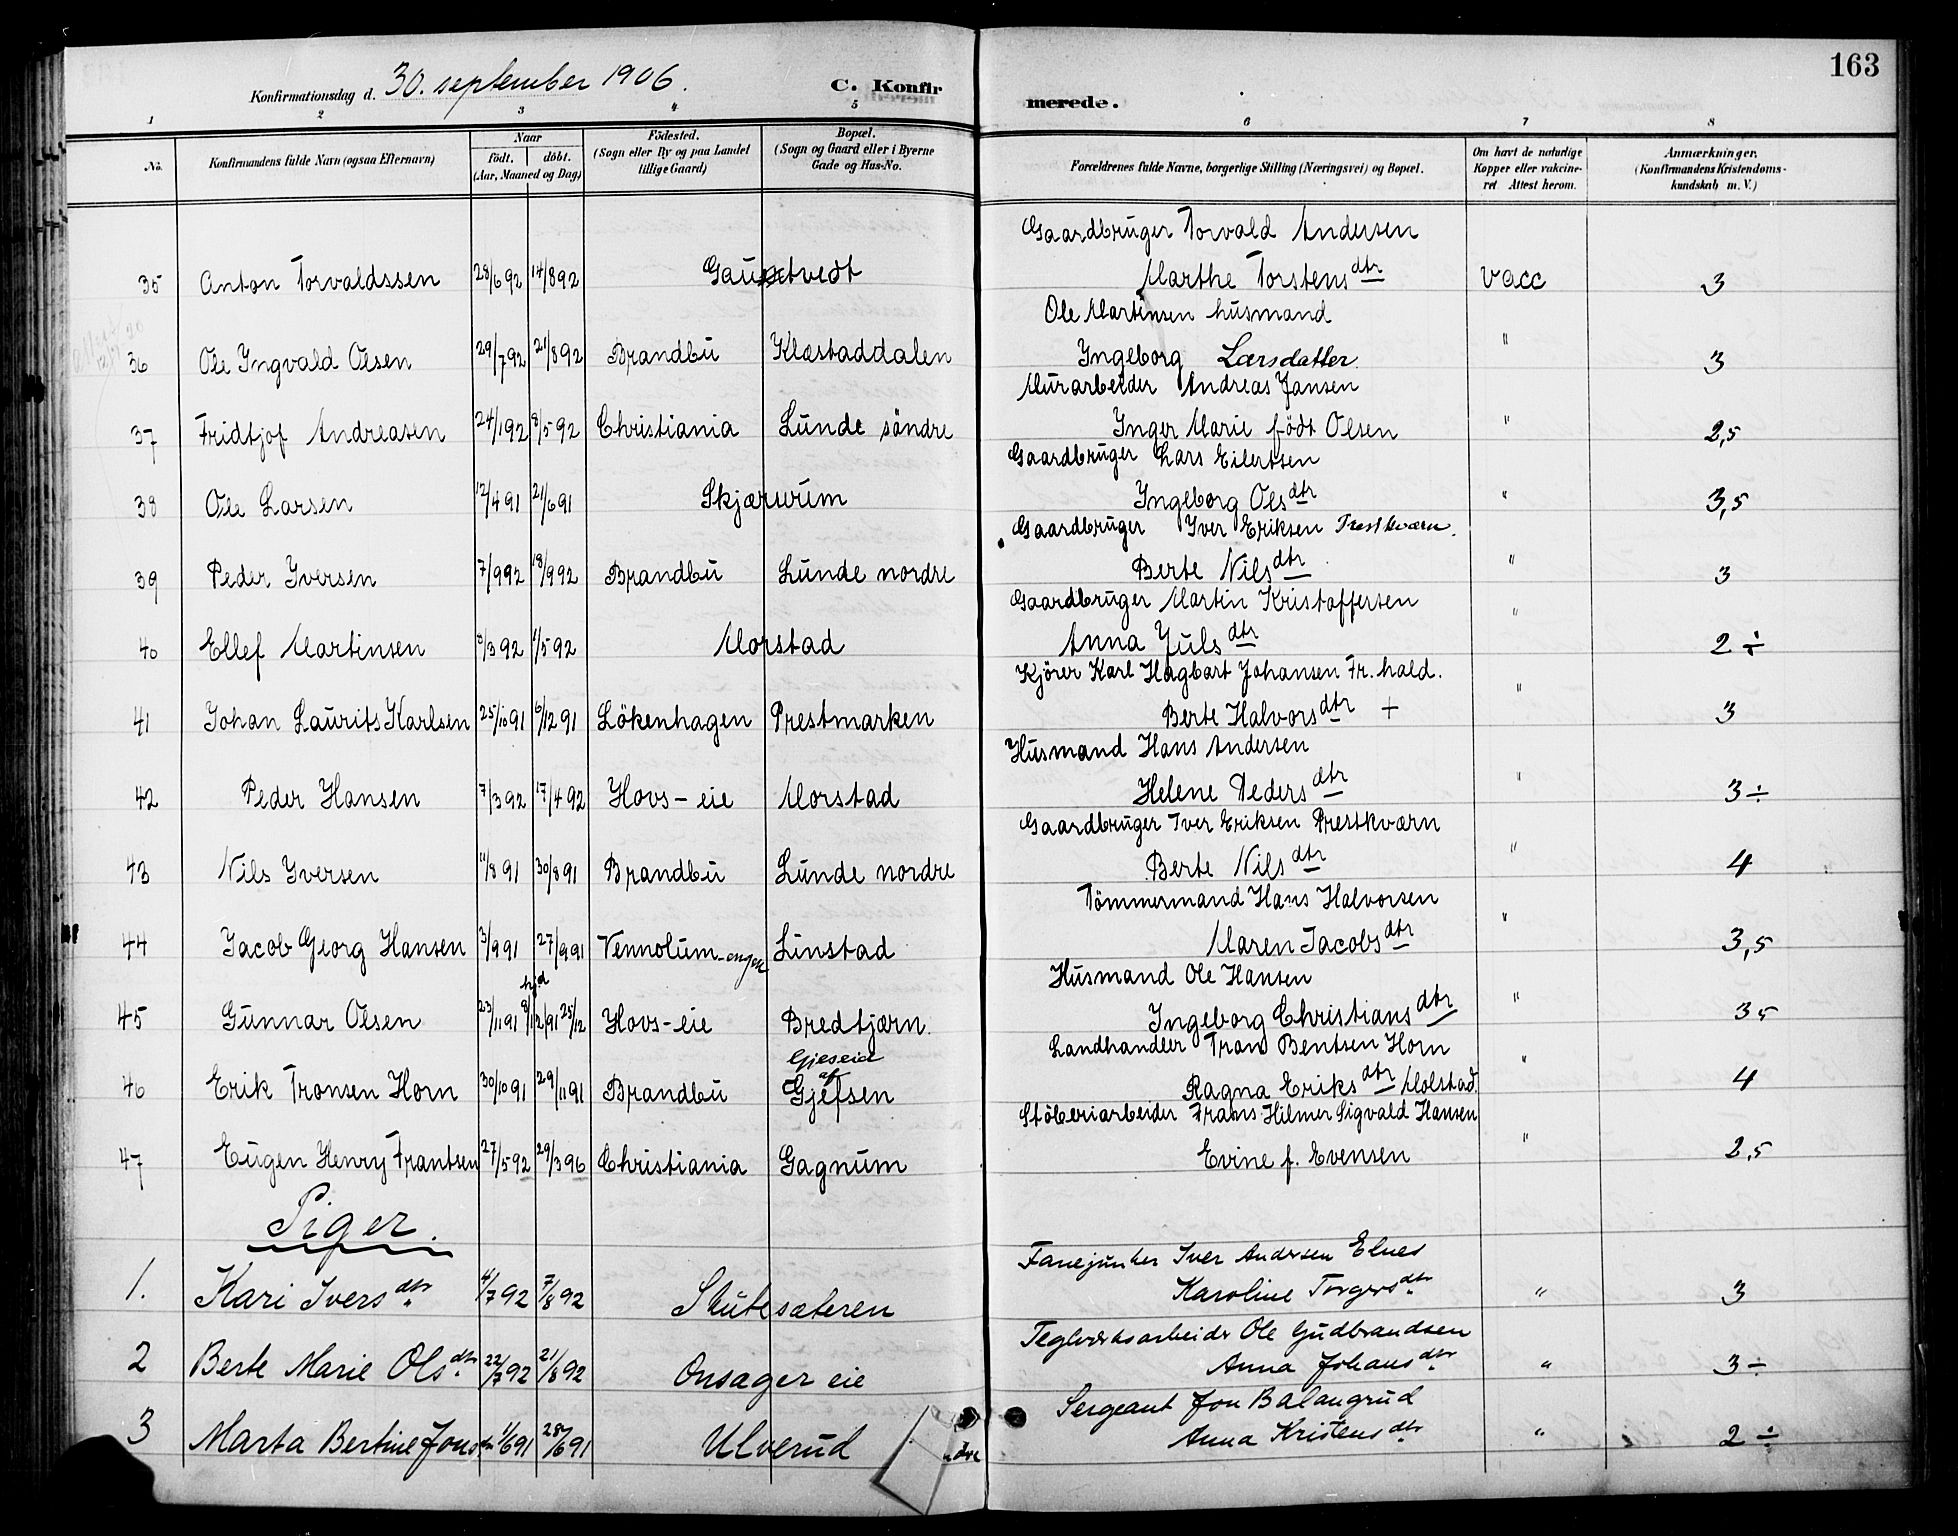 163
Konfirmationsdag d. 30. september 1906. C. Konfirmerede.
1 2 3 4 5 6 7 8
No. Konfirmandens fulde Navn (ogsaa Efternavn) Naar födt. döbt. (Aar, Maaned og Dag) Födested. (Sogn eller By og paa Landet tillige Gaard) Bopæl. (Sogn og Gaard eller i Byerne Gade og Hus-No. Forældrenes fulde Navne, borgerlige Stilling (Næringsvei) og Bopæl. Om havt de naturlige Kopper eller vakcineret. Attest herom. Anmærkninger. (Konfirmandens Kristendomskundskab m. V.)
Gaardbruger Torvald Andersen
35 Anton Torvaldssen 28/6 92 14/8 92 Gauetvedt Marthe Torstensdtr vacc 3
Ole Martinsen husmand
36 Ole Ingvald Olsen 29/7 92 21/8 92 Brandbu Klæstaddalen Ingeborg Larsdatter " 3
Murarbeider Andreas Jansen
37 Fridtjof Andreasen 24/1 92 8/5 92 Christiania Lunde söndre Inger Marie födt Olsen " 2,5
Gaardbruger Lars Eilertsen
38 Ole Larsen 12/4 91 21/6 91 Skjærvum Ingeborg Olsdtr " 3,5
Gaardbruger Iver Eriksen Prestkværn.
39 Peder Iversen 7/9 92 18/9 92 Brandbu Lunde nordre Berte Nilsdtr " 3
Gaardbruger Martin Kristoffersen
40 Ellef Martinsen 8/3 92 1/5 92 Morstad Anna Julsdtr " 2 ÷
Kjörer Karl Hagbart Johansen Fr.hald.
41 Johan Laurits Karlsen 25/10 91 6/12 91 Lökenhagen Prestmarken Berte Halvorsdtr + " 3
Husmand Hans Andersen
42 Peder Hansen 7/3 92 17/4 92 Hovs-eie Morstad Helene Pedersdtr " 3 ÷
Gaardbruger Iver Eriksen Prestkværn
43 Nils Iversen 11/8 91 30/8 91 Brandbu Lunde nordre Berte Nilsdtr " 4
Tömmermand Hans Halvorsen
44 Jacob Georg Hansen 3/9 91 27/9 91 Vennolum-engen Linstad Maren Jacobsdtr " 3,5
Husmand Ole Hansen
hjd
45 Gunnar Olsen 23/11 91 8/12 91 25/12 Hovs-eie Bredtjærn. Ingeborg Christiansdtr " 35
Landhandler Tron Bentsen Horn
Gjeseid af
46 Erik Tronsen Horn 30/10 91 29/11 91 Brandbu Gjefsen Ragna Eriksdtr Molstad. " 4
Stöberiarbeider Frans Hilmer Sigvald Hansen
47 Eugen Henry Frantsen 27/5 92 29/3 96 Christiania Gagnum Evine f. Evensen " 2,5
Piger.
Fanejunker Iver Andersen Elnes
1. Kari Iversdtr 4/7 92 7/8 92 Skutesæteren Karoline Torgersdtr " 3
Teglværksarbeider Ole Gudbrandsen
2 Berte Marie Olsdtr 22/7 92 21/8 92 Onsager eie Anna Johansdtr " 3 ÷
Sergeant Jon Balangrud
3 Marta Bertine Jonsdtr 1/6 91 28/6 91 Ulverud Anna Kristensdtr " 2 ÷